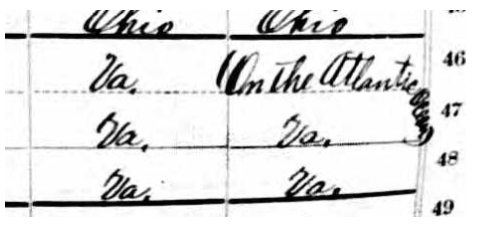 Ohio Ohio
Va. (On the Atlantic Ocean) 46
47
Va. Va.
48
Va. Va.
49